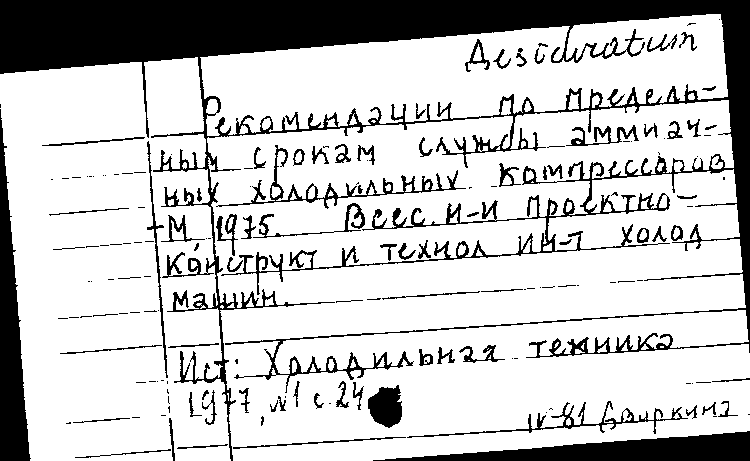 Дезidиratum
Рекомендации по предель-
ным срокам службы аммиач-
ных холодильных компрессоров
-М, 1975. Всес. н-и проектно-
конструкт и технол ин-т холод
машин.
Ист: Холодильная техника
1977, №1 с. 24
IV-81 Двиркина